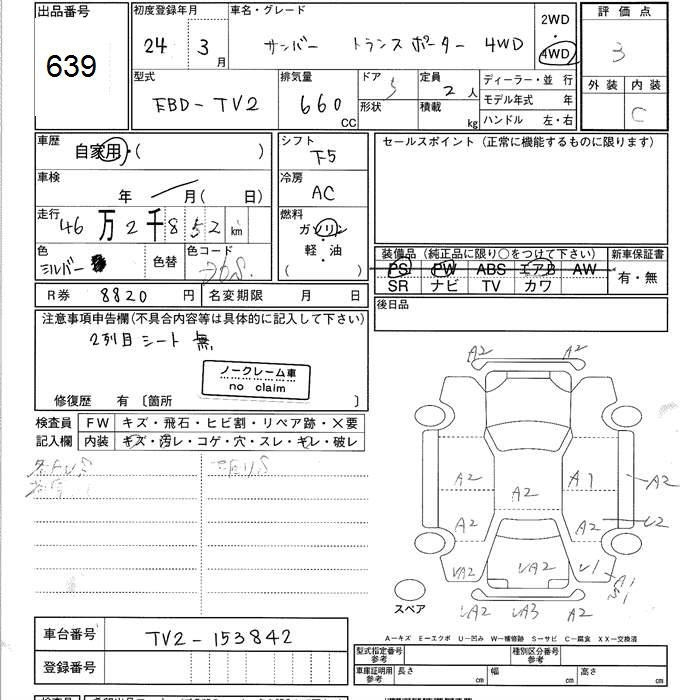 出品番号
639
初度登録年月
24 3月
車名・グレード
サンバー トランスポーター 4WD
2WD
4WD
評価点
3
外装 内装
C
型式
EBD-TV2
排気量
660 CC
ドア
5
形状
定員
2人
積載
kg
ディーラー・並行
モデル年式 年
ハンドル 左・右
車歴
自家用・( )
車検
年 月( 日)
走行
46万2千852 km
色
シルバー
色替
色コード
R券 8820円
名変期限 月 日
シフト
F5
冷房
AC
燃料
ガソリン
軽・油
( )
セールスポイント (正常に機能するものに限ります)
装備品 (純正品に限り○をつけて下さい)
PS PW ABS エアB AW
SR ナビ TV カワ
新車保証書
有・無
後日品
注意事項申告欄(不具合内容等は具体的に記入して下さい)
2列目シート 無
ノークレーム車
no claim
修復歴 有 〔箇所
検査員 FW キズ・飛石・ヒビ割・リペア跡・×要
記入欄 内装 キズ・汚レ・コゲ・穴・スレ・キレ・破レ
A2 A2
A2 A1 A2
A2
A2 A2 U2
UA2 UA2 U1 A1
S1
UA2 UA3 A2
スペア
A-キズ E-エクボ U-凹み W-補修跡 S-サビ C-腐食 XX-交換済
車台番号 TV2-153842
登録番号
型式指定番号
参考
種別区分番号
参考
車庫証明用
参考
長さ cm
幅 cm
高さ cm